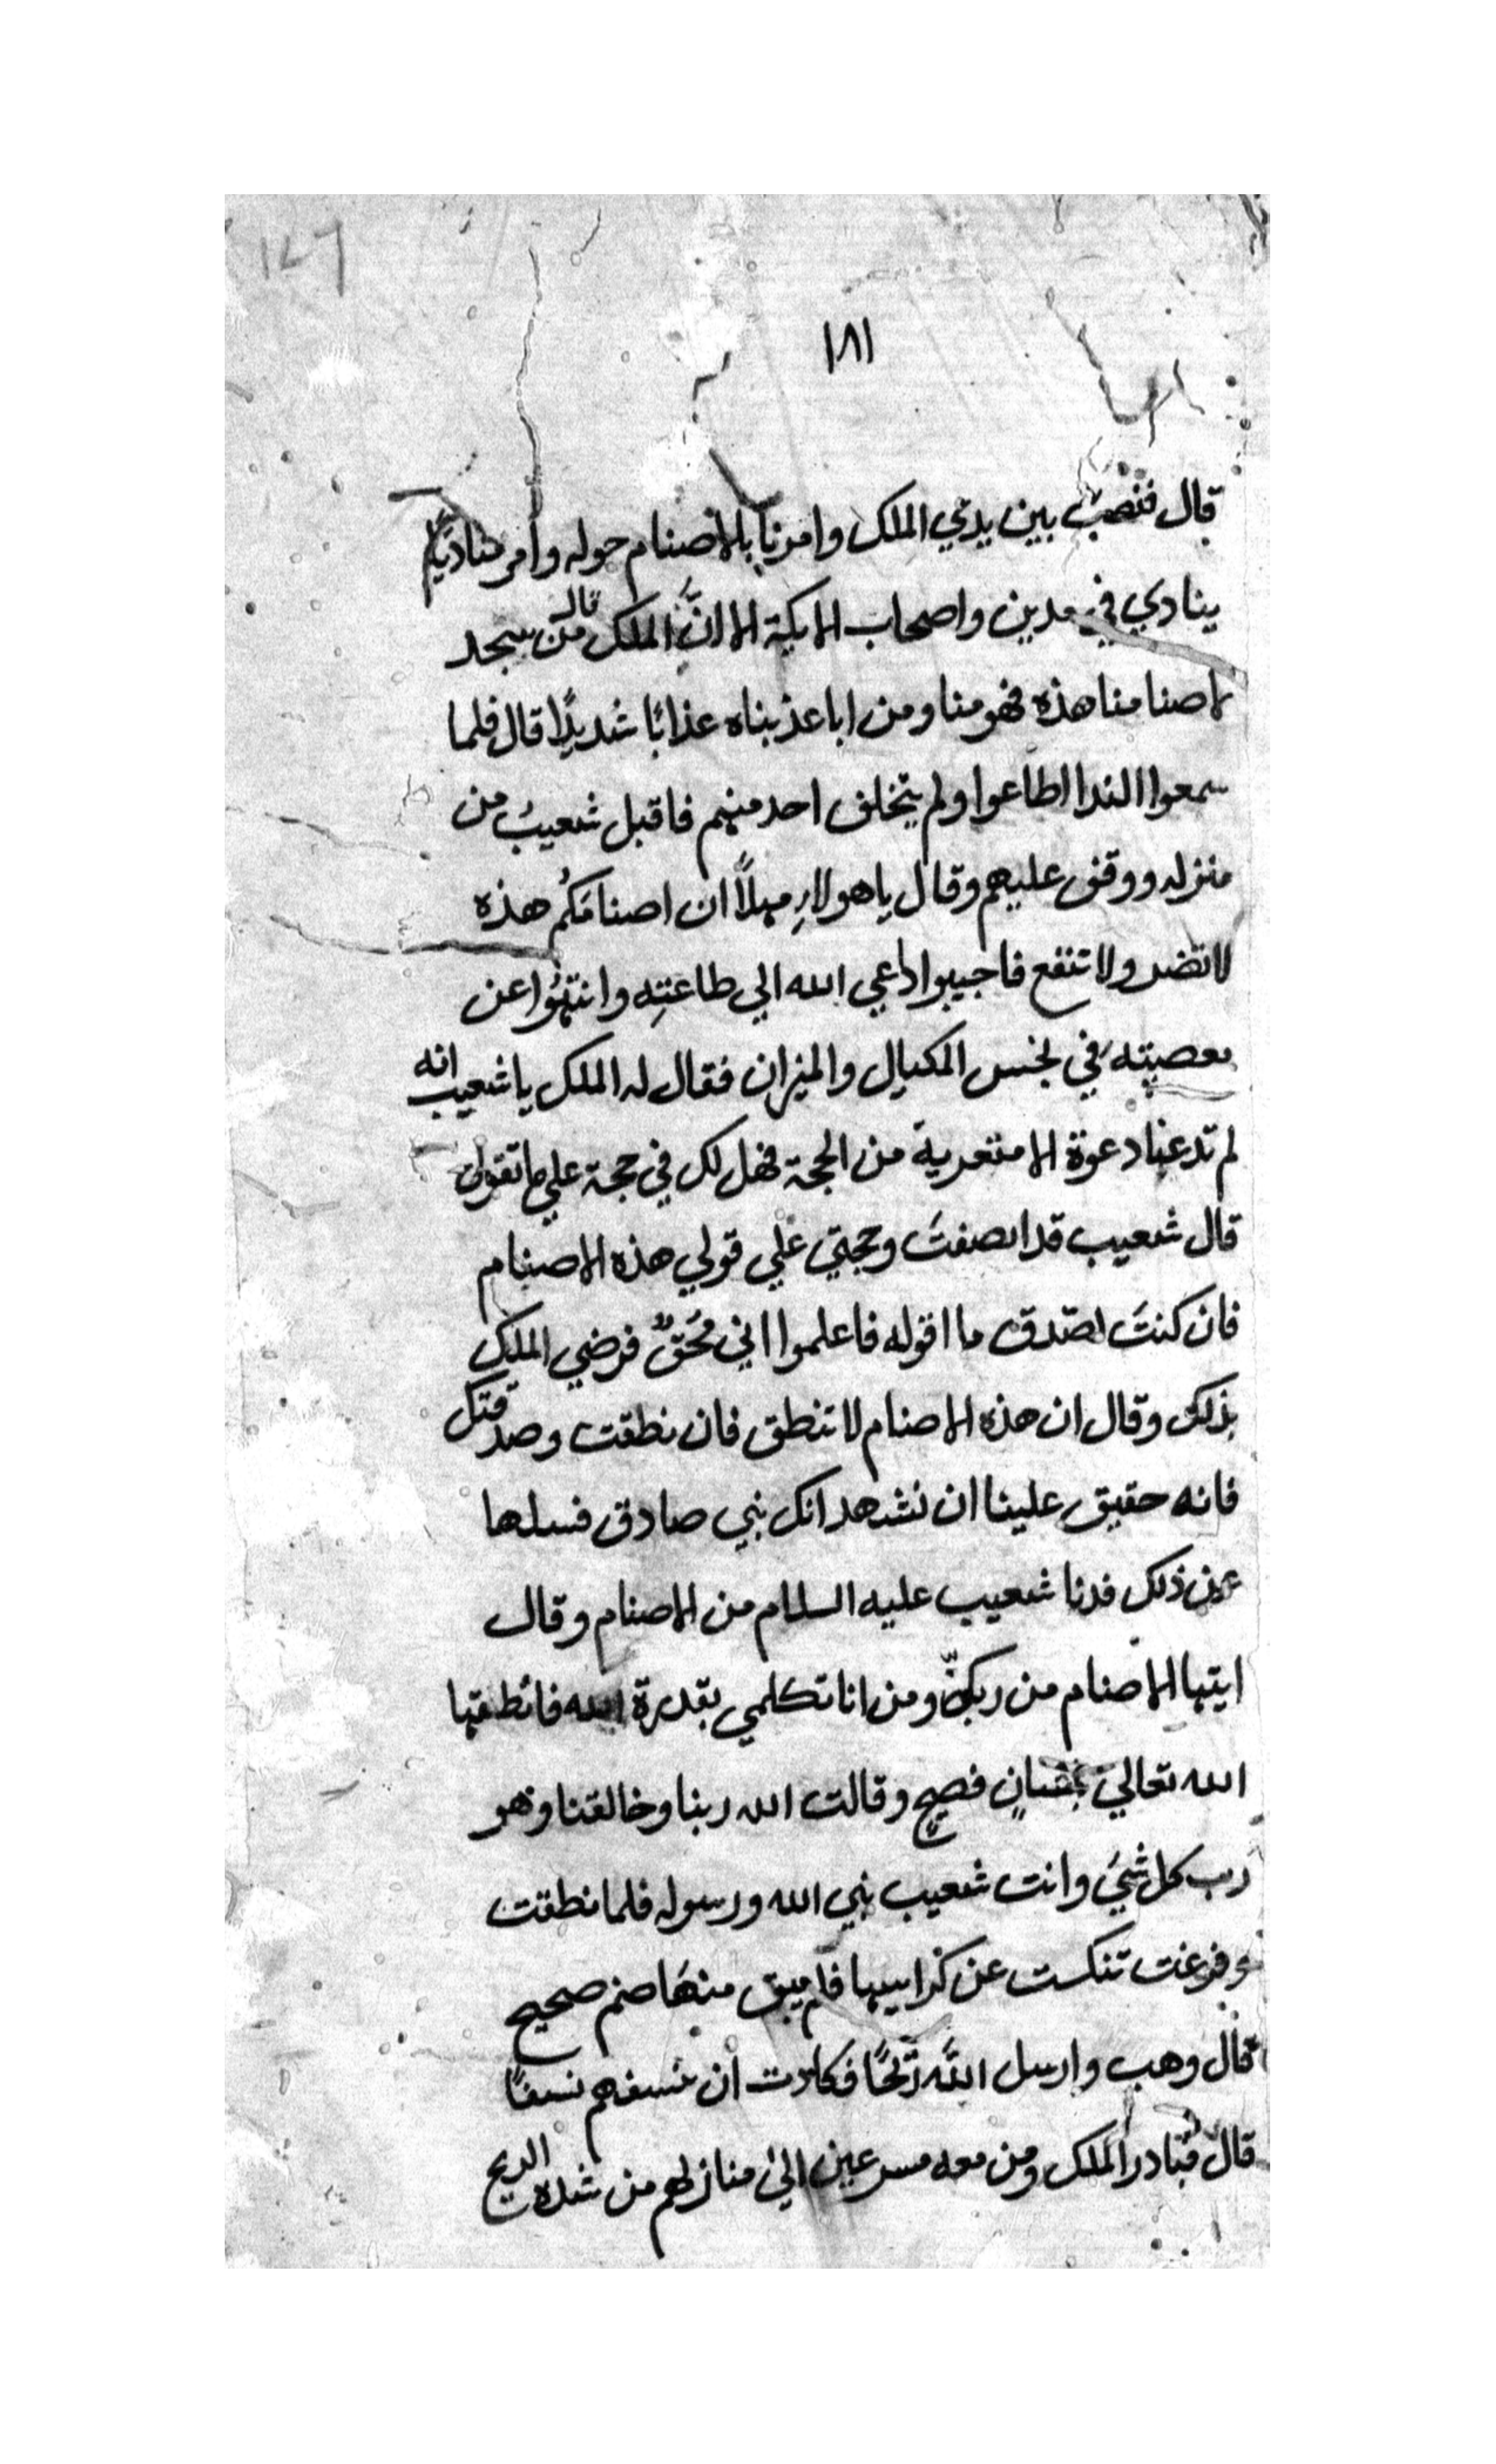 ١٨١
قال فنصب بين يدي الملك وامرنا بالاصنام حوله وامر مناديا
ينادي في مدين واصحاب الايكة الا ان الملك قال من سجد
لاصنامنا هذه فهو منا ومن ابا عذبناه عذابًا شديدًا قال فلما
سمعوا الندا اطاعوا ولم يتخلف احد منهم فاقبل شعيب من
منزله ووقف عليهم وقال يا هولاءِ مهلاً ان اصنامكُم هذه
لا تضر ولا تنفع فاجيبوا داعي الله الي طاعتِه وانتهُوا عن
معصيته في بخس المكيال والميزان فقال له الملك يا شعيب انه
لم تدعنا دعوة الا متعدية من الحجة فهل لك في حجة علي ما تقول
قال شعيب قد انصفتَ وحجتي علي قولي هذه الاصنام
فان كنتَ تصدق ما اقوله فاعلموا اني مُحَقٌ فرضي الملك
بذلك وقال ان هذه الاصنام لا تنطق فان نطقت وصدقتك
فانه حقيق علينا ان نشهد انك نبي صادق فسلها
عن ذلك فدنا شعيب عليه السلام من الاصنام وقال
ايتها الاصنام من ربكنّ ومن انا تكلمي بقدرة الله فانطقها
الله تعالي بلسانٍ فصيحٍ وقالت الله ربنا وخالقنا وهو
رب كل شيَ وانت شعيب نبي الله ورسوله فلما نطقت
وفرغت تنكست عن كراسيها فلم يبق منهَا صنم صحيح
قال وهب وارسل اللَّه ريحًا فكادت ان تنسفهم نسفًا
قال فبادر الملك ومن معه مسرعين الي منازلهم من شده الريح